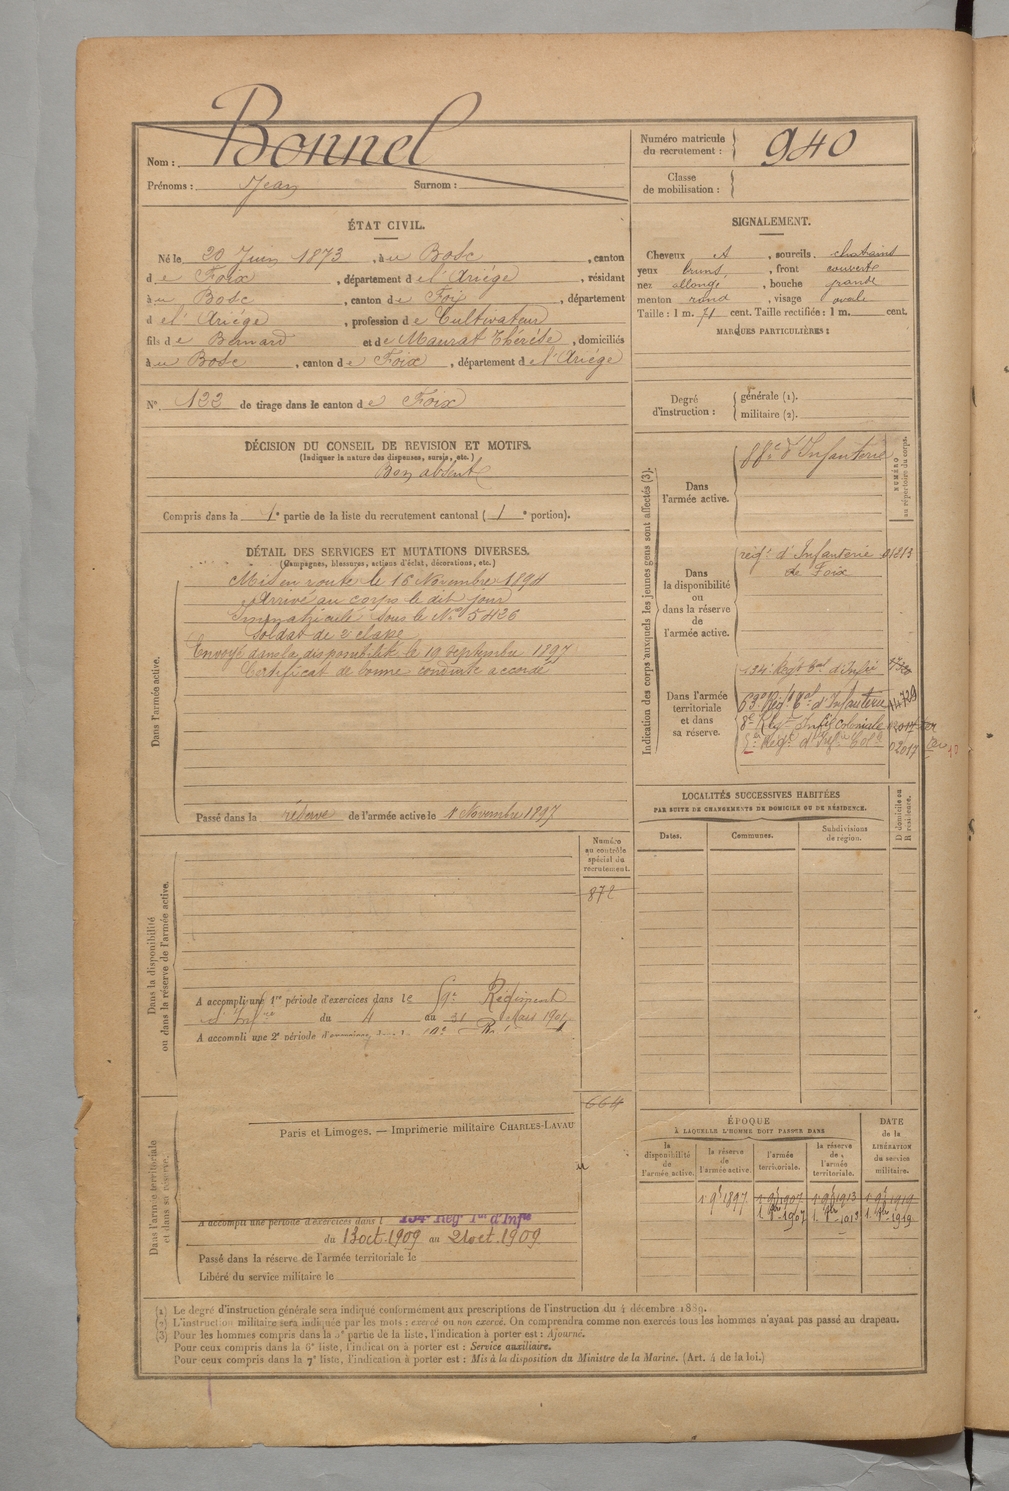 Nom : Bonnel
Prénoms : Jean Surnom :
Numéro matricule du recrutement : 940
Classe de mobilisation :
ÉTAT CIVIL.
Né le 20 Juin 1873, à u Bosc, canton
d e Foix, département d e l'Ariége, résidant
à u Bosc, canton d e Foix, département
d e l'Ariége, profession d e Cultivateur
fils d e Bernard et d e Maurat Thérése, domiciliés
à u Bosc, canton d e Foix, département d e l'Ariége
N° 122 de tirage dans le canton d e Foix
SIGNALEMENT.
Cheveux et, sourcils chatains
yeux bruns, front couverte
nez allongé, bouche grande
menton rond, visage ovale
Taille : 1 m. 71 cent. Taille rectifiée : 1 m. cent.
MARQUES PARTICULIÈRES :
Degré d'instruction : générale (1).
militaire (2).
DÉCISION DU CONSEIL DE REVISION ET MOTIFS.
(Indiquer la nature des dispenses, sursis, etc.)
Bon absent
Compris dans la 1e partie de la liste du recrutement cantonal ( 1 e portion).
DÉTAIL DES SERVICES ET MUTATIONS DIVERSES.
(Campagnes, blessures, actions d'éclat, décorations, etc.)
Dans l'armée active.
Mis en route le 16 Novembre 1894
Arrivé au corps le dit jour
Immatriculé sous le No 5426
Soldat de 2e classe
Envoyé dans la disponibilité le 19 septembre 1897
Certificat de bonne conduite accordé
Passé dans la réserve de l'armée active le 1er Novembre 1897
Indication des corps auxquels les jeunes gens sont affectés (3).
NUMÉRO au répertoire du corps.
Dans l'armée active.
d'Infanterie
Dans la disponibilité ou dans la réserve de l'armée active.
régt d'Infanterie 01213
de Foix
Dans l'armée territoriale et dans sa réserve.
134e Régt tal d'Infie
63e Rég. tal d'Infanterie 14729
8e Régt Infie Coloniale 02017 ter
d'Infie Colle 02017 ter
LOCALITÉS SUCCESSIVES HABITÉES
PAR SUITE DE CHANGEMENTS DE DOMICILE OU DE RÉSIDENCE.
D domicile ou R résidence.
Dates. Communes. Subdivisions de région.
Numéro au contrôle spécial du recrutement.
872
Dans la disponibilité ou dans la réserve de l'armée active.
A accompli une 1re période d'exercices dans le 59e Régiment
d'Infie du 4 au 31 Mars 1901
A accompli une 2e période d'exercices dans l
664
Paris et Limoges. — Imprimerie militaire CHARLES-LAVAU
Dans l'armée territoriale et dans sa réserve.
A accompli une période d'exercices dans l 134e Régt Tal d'Infie
du 13 oct. 1909 au 21 oct. 1909
Passé dans la réserve de l'armée territoriale le
Libéré du service militaire le
ÉPOQUE
À LAQUELLE L'HOMME DOIT PASSER DANS
DATE de la LIBÉRATION du service militaire.
la disponibilité de l'armée active. la réserve de l'armée active. l'armée territoriale. la réserve de l'armée territoriale.
1 9b 1897 1 9b 1907 1 9b 1913 1 9b 1919
1. 8bre 1907 1. 8bre 1913 1. 8bre 1919
(1) Le degré d'instruction générale sera indiqué conformément aux prescriptions de l'instruction du 4 décembre 1889.
(2) L'instruction militaire sera indiquée par les mots : exercé ou non exercé. On comprendra comme non exercés tous les hommes n'ayant pas passé au drapeau.
(3) Pour les hommes compris dans la 5e partie de la liste, l'indication à porter est : Ajourné.
Pour ceux compris dans la 6e liste, l'indication à porter est : Service auxiliaire.
Pour ceux compris dans la 7e liste, l'indication à porter est : Mis à la disposition du Ministre de la Marine. (Art. 4 de la loi.)